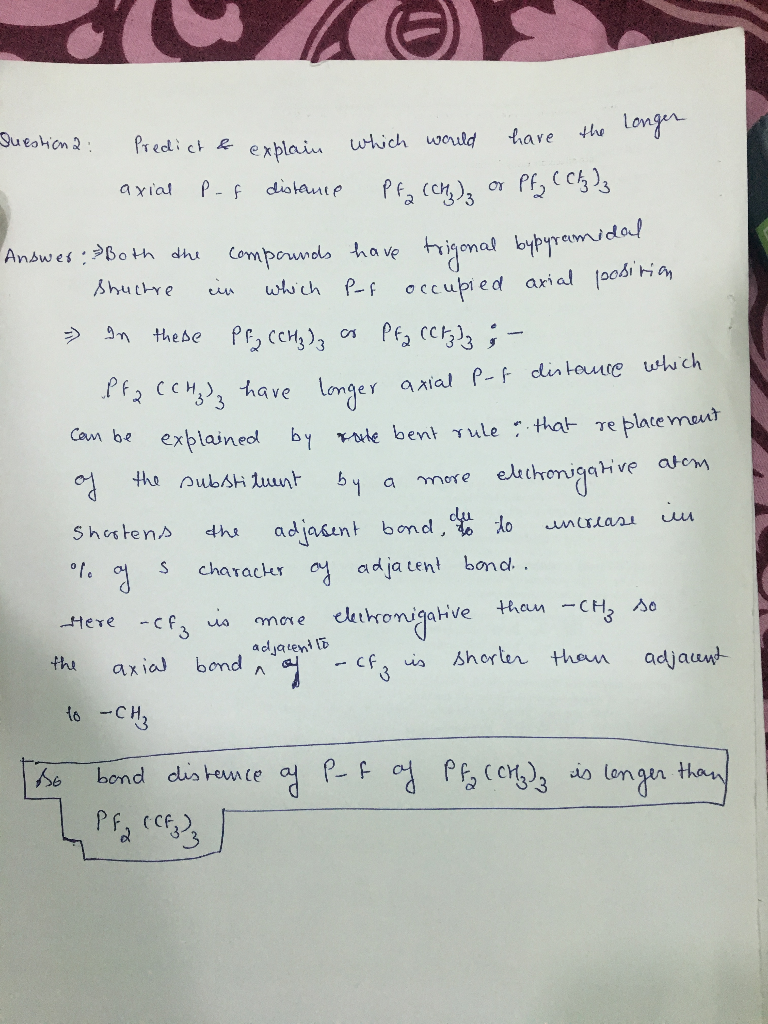 Question 2: Predict & explain which would have the longer
axial P-f distance Pf2(CH3)3 or Pf2(Cf3)3
Answer: ⇒Both the compounds have trigonal bypyramidal
structre in which P-f occupied axial position
⇒ In these Pf2(CH3)3 or Pf2(Cf3)3 :-
Pf2(CH3)3 have longer axial P-f distance which
can be explained by bent rule : that replacement
of the substituent by a more electronigative atom
shortens the adjasent bond, due to increase in
% of s character of adjacent bond..
Here -Cf3 is more electronigative than -CH3 so
the axial bond adjacent to -Cf3 is shorter than adjacent
to -CH3
So bond distance of P-f of Pf2(CH3)3 is longer than
Pf2(Cf3)3